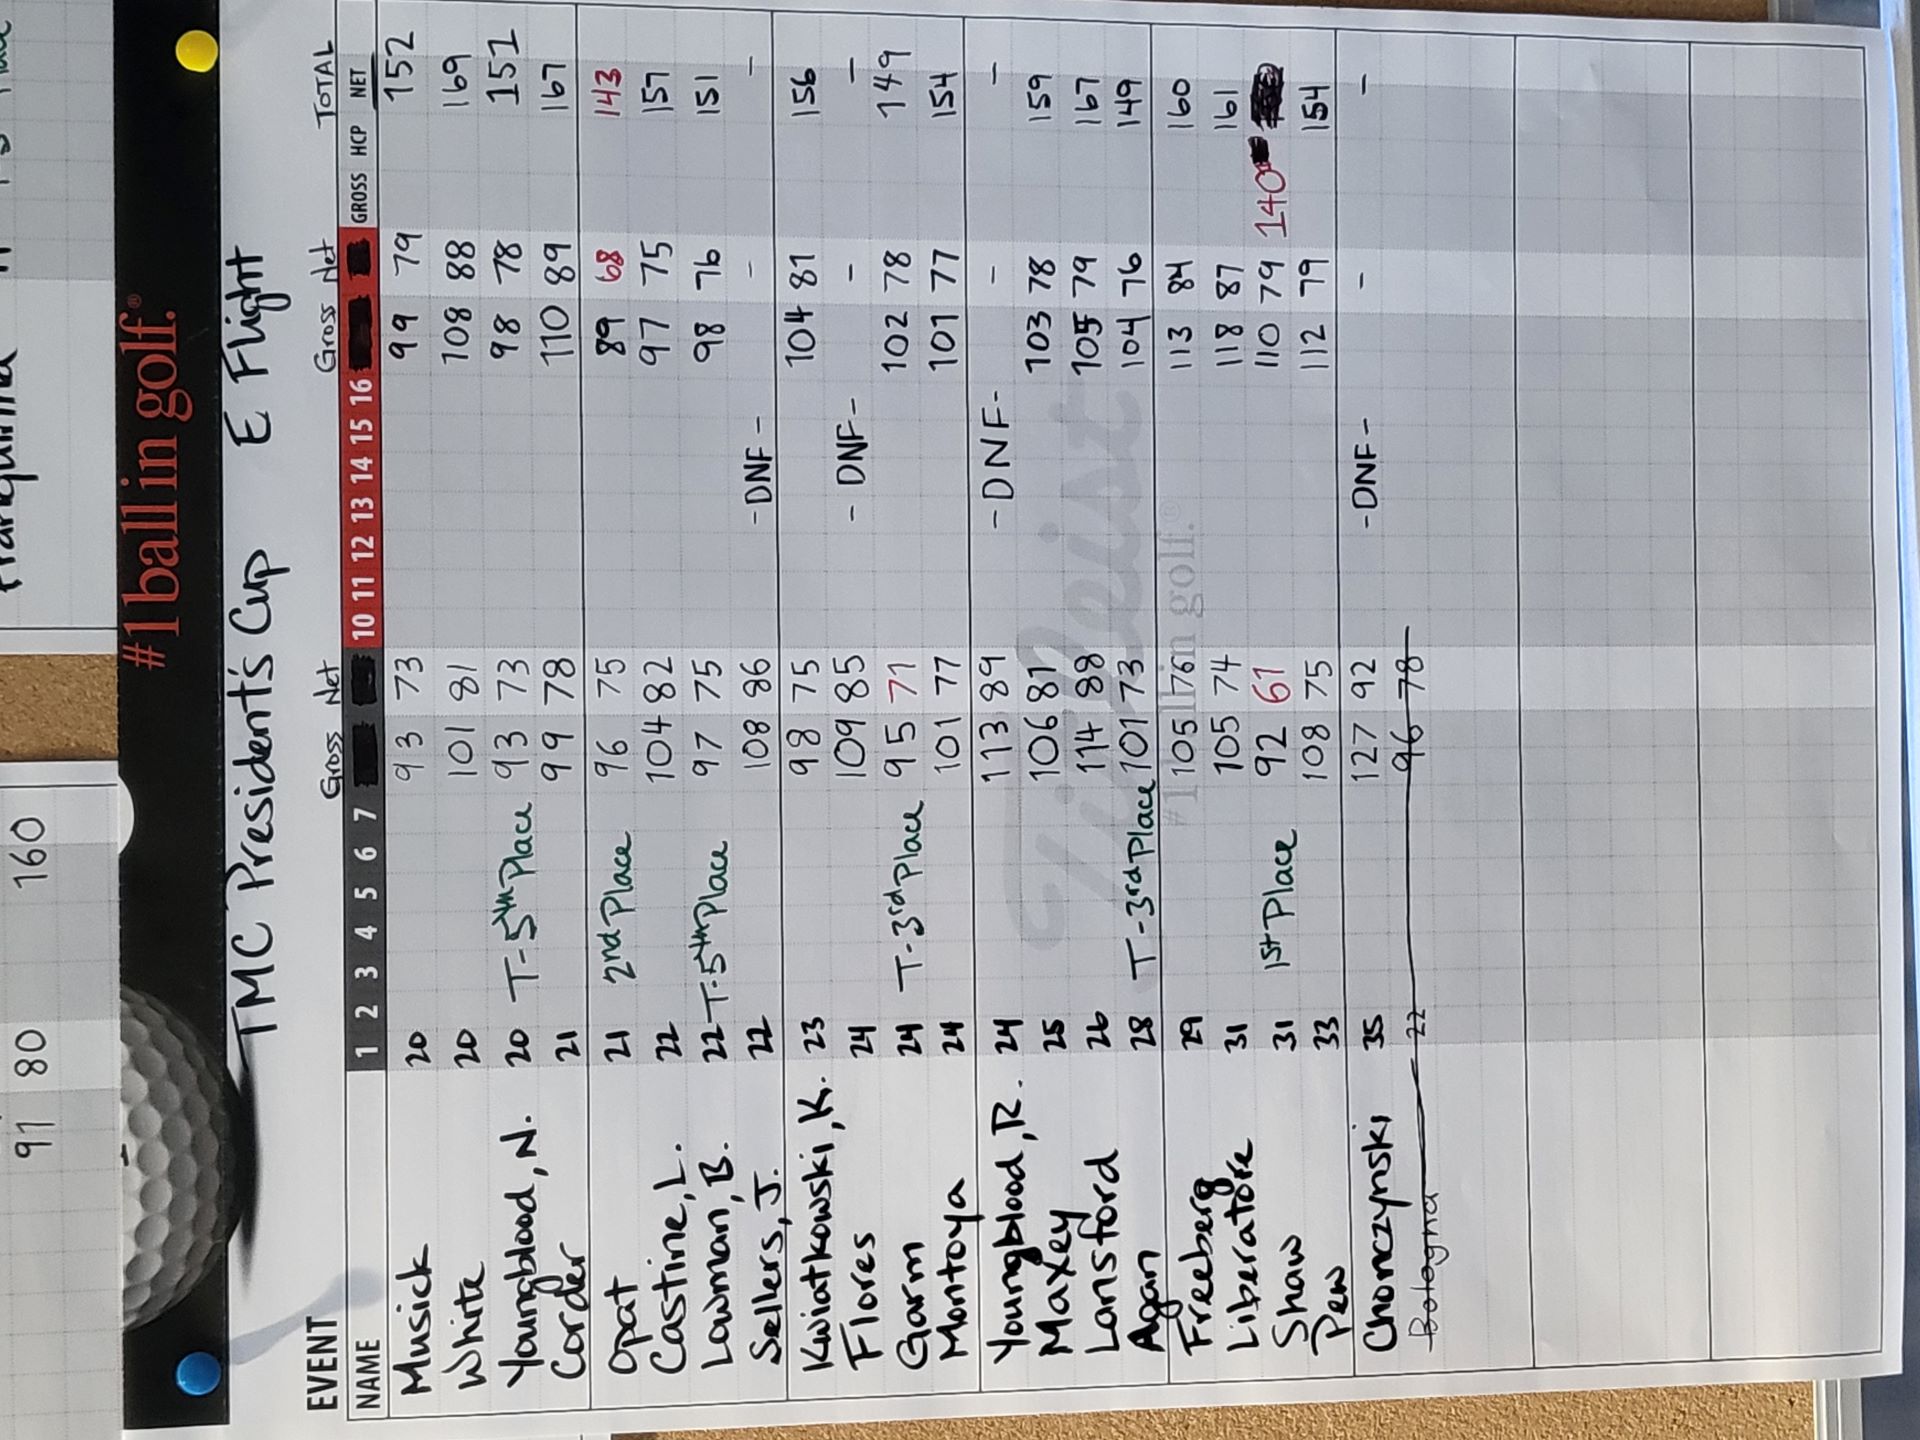 91 80 160
#1 ball in golf.®
TMC President's Cup E Flight
EVENT Gross Net Gross Net TOTAL
NAME 1 2 3 4 5 6 7 10 11 12 13 14 15 16 GROSS HCP NET
Musick 20 93 73 99 79 152
White 20 101 81 108 88 169
Youngblood, N. 20 T-5th Place 93 73 98 78 151
Corder 21 99 78 110 89 167
Opat 21 2nd Place 96 75 89 68 143
Castine, L. 22 104 82 97 75 157
Lowman, B. 22 T-5th Place 97 75 98 76 151
Sellers, J. 22 108 86 -DNF- - -
Kwiatkowski, K. 23 98 75 104 81 156
Flores 24 109 85 -DNF- - -
Garm 24 T-3rd Place 95 71 102 78 149
Montoya 24 101 77 101 77 154
Youngblood, R. 24 113 89 -DNF- - -
Maxey 25 106 81 103 78 159
Lansford 26 114 88 105 79 167
Agan 28 T-3rd Place 101 73 104 76 149
Freeberg 29 105 76 113 84 160
Liberatore 31 105 74 118 87 161
Shaw 31 1st Place 92 61 110 79 140
Pew 33 108 75 112 79 154
Chonczynski 35 127 92 -DNF- - -
Bologna 22 96 78
Titleist
#1 ball in golf.®